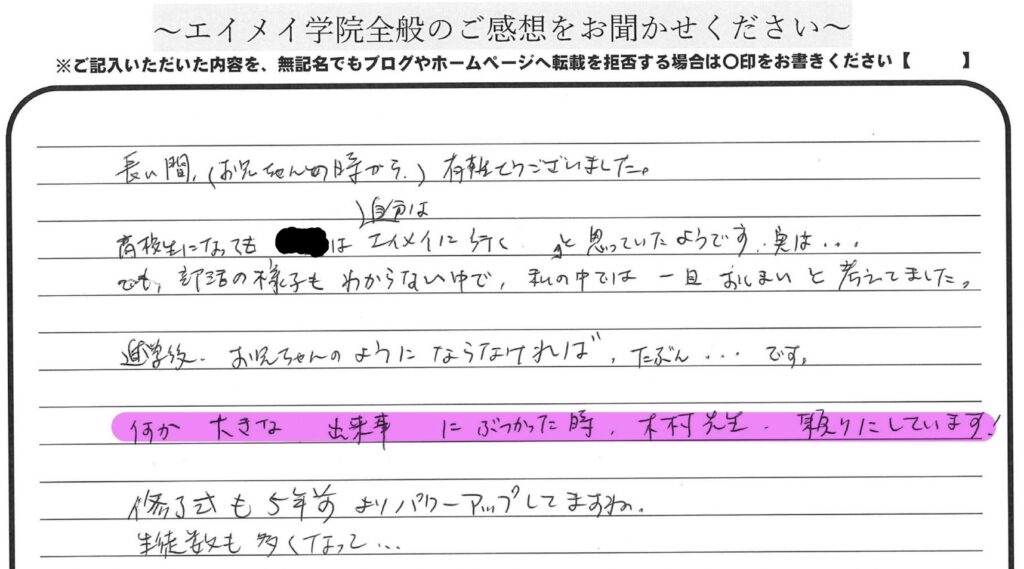 ～エイメイ学院全般のご感想をお聞かせください～
※ご記入いただいた内容を、無記名でもブログやホームページへ転載を拒否する場合は〇印をお書きください【　　　】
長い間、(お兄ちゃんの時から、) 有難うございました。
自分は
高校生になっても は エイメイに行く と思っていたようです、実は・・・
でも、部活の様子もわからない中で、私の中では一旦おしまいと考えてました。
進学後、お兄ちゃんのようにならなければ、たぶん・・・です。
何か大きな出来事にぶつかった時、木村先生、頼りにしています!
修了式も5年前よりパワーアップしてますね。
生徒数も多くなって…